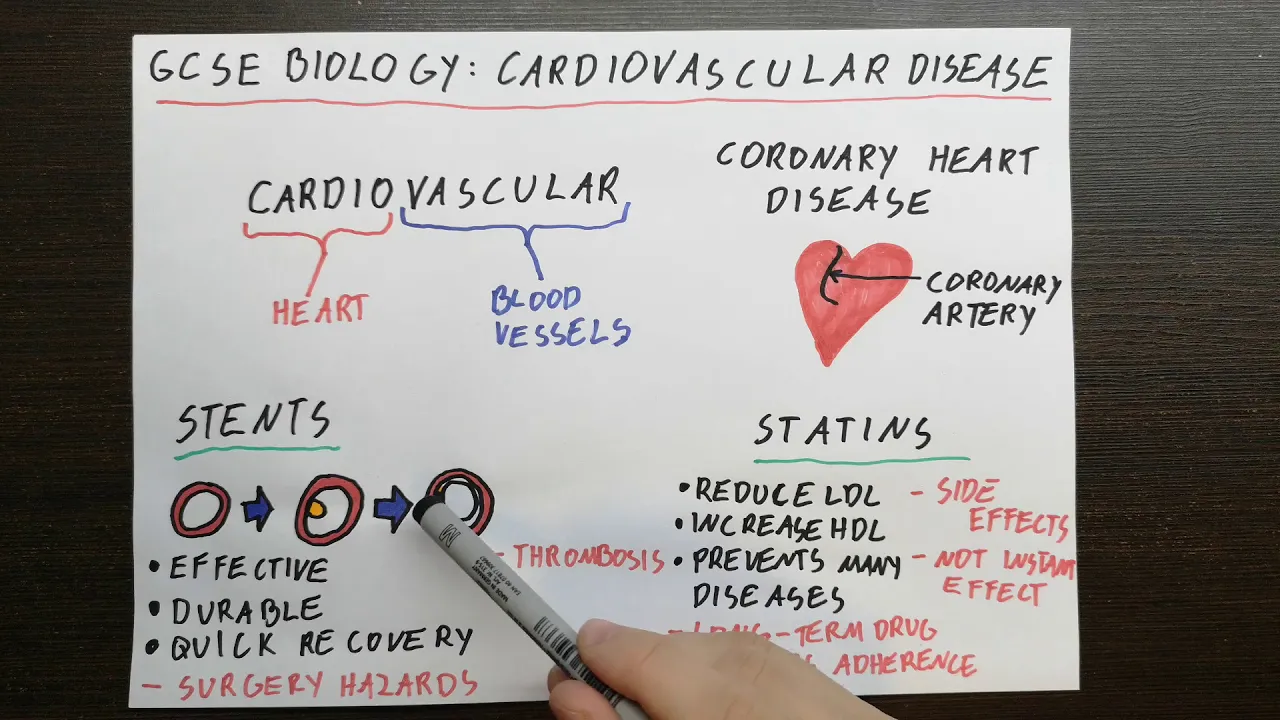 GCSE BIOLOGY: CARDIOVASCULAR DISEASE
CARDIOVASCULAR
HEART
BLOOD
VESSELS
CORONARY HEART
DISEASE
CORONARY
ARTERY
STENTS
• EFFECTIVE
• DURABLE
• QUICK RECOVERY
- SURGERY HAZARDS
- THROMBOSIS
STATINS
• REDUCE LDL
• INCREASE HDL
• PREVENTS MANY
DISEASES
- SIDE
EFFECTS
- NOT INSTANT
EFFECT
- LONG-TERM DRUG
ADHERENCE
M
MADE IN GERMANY